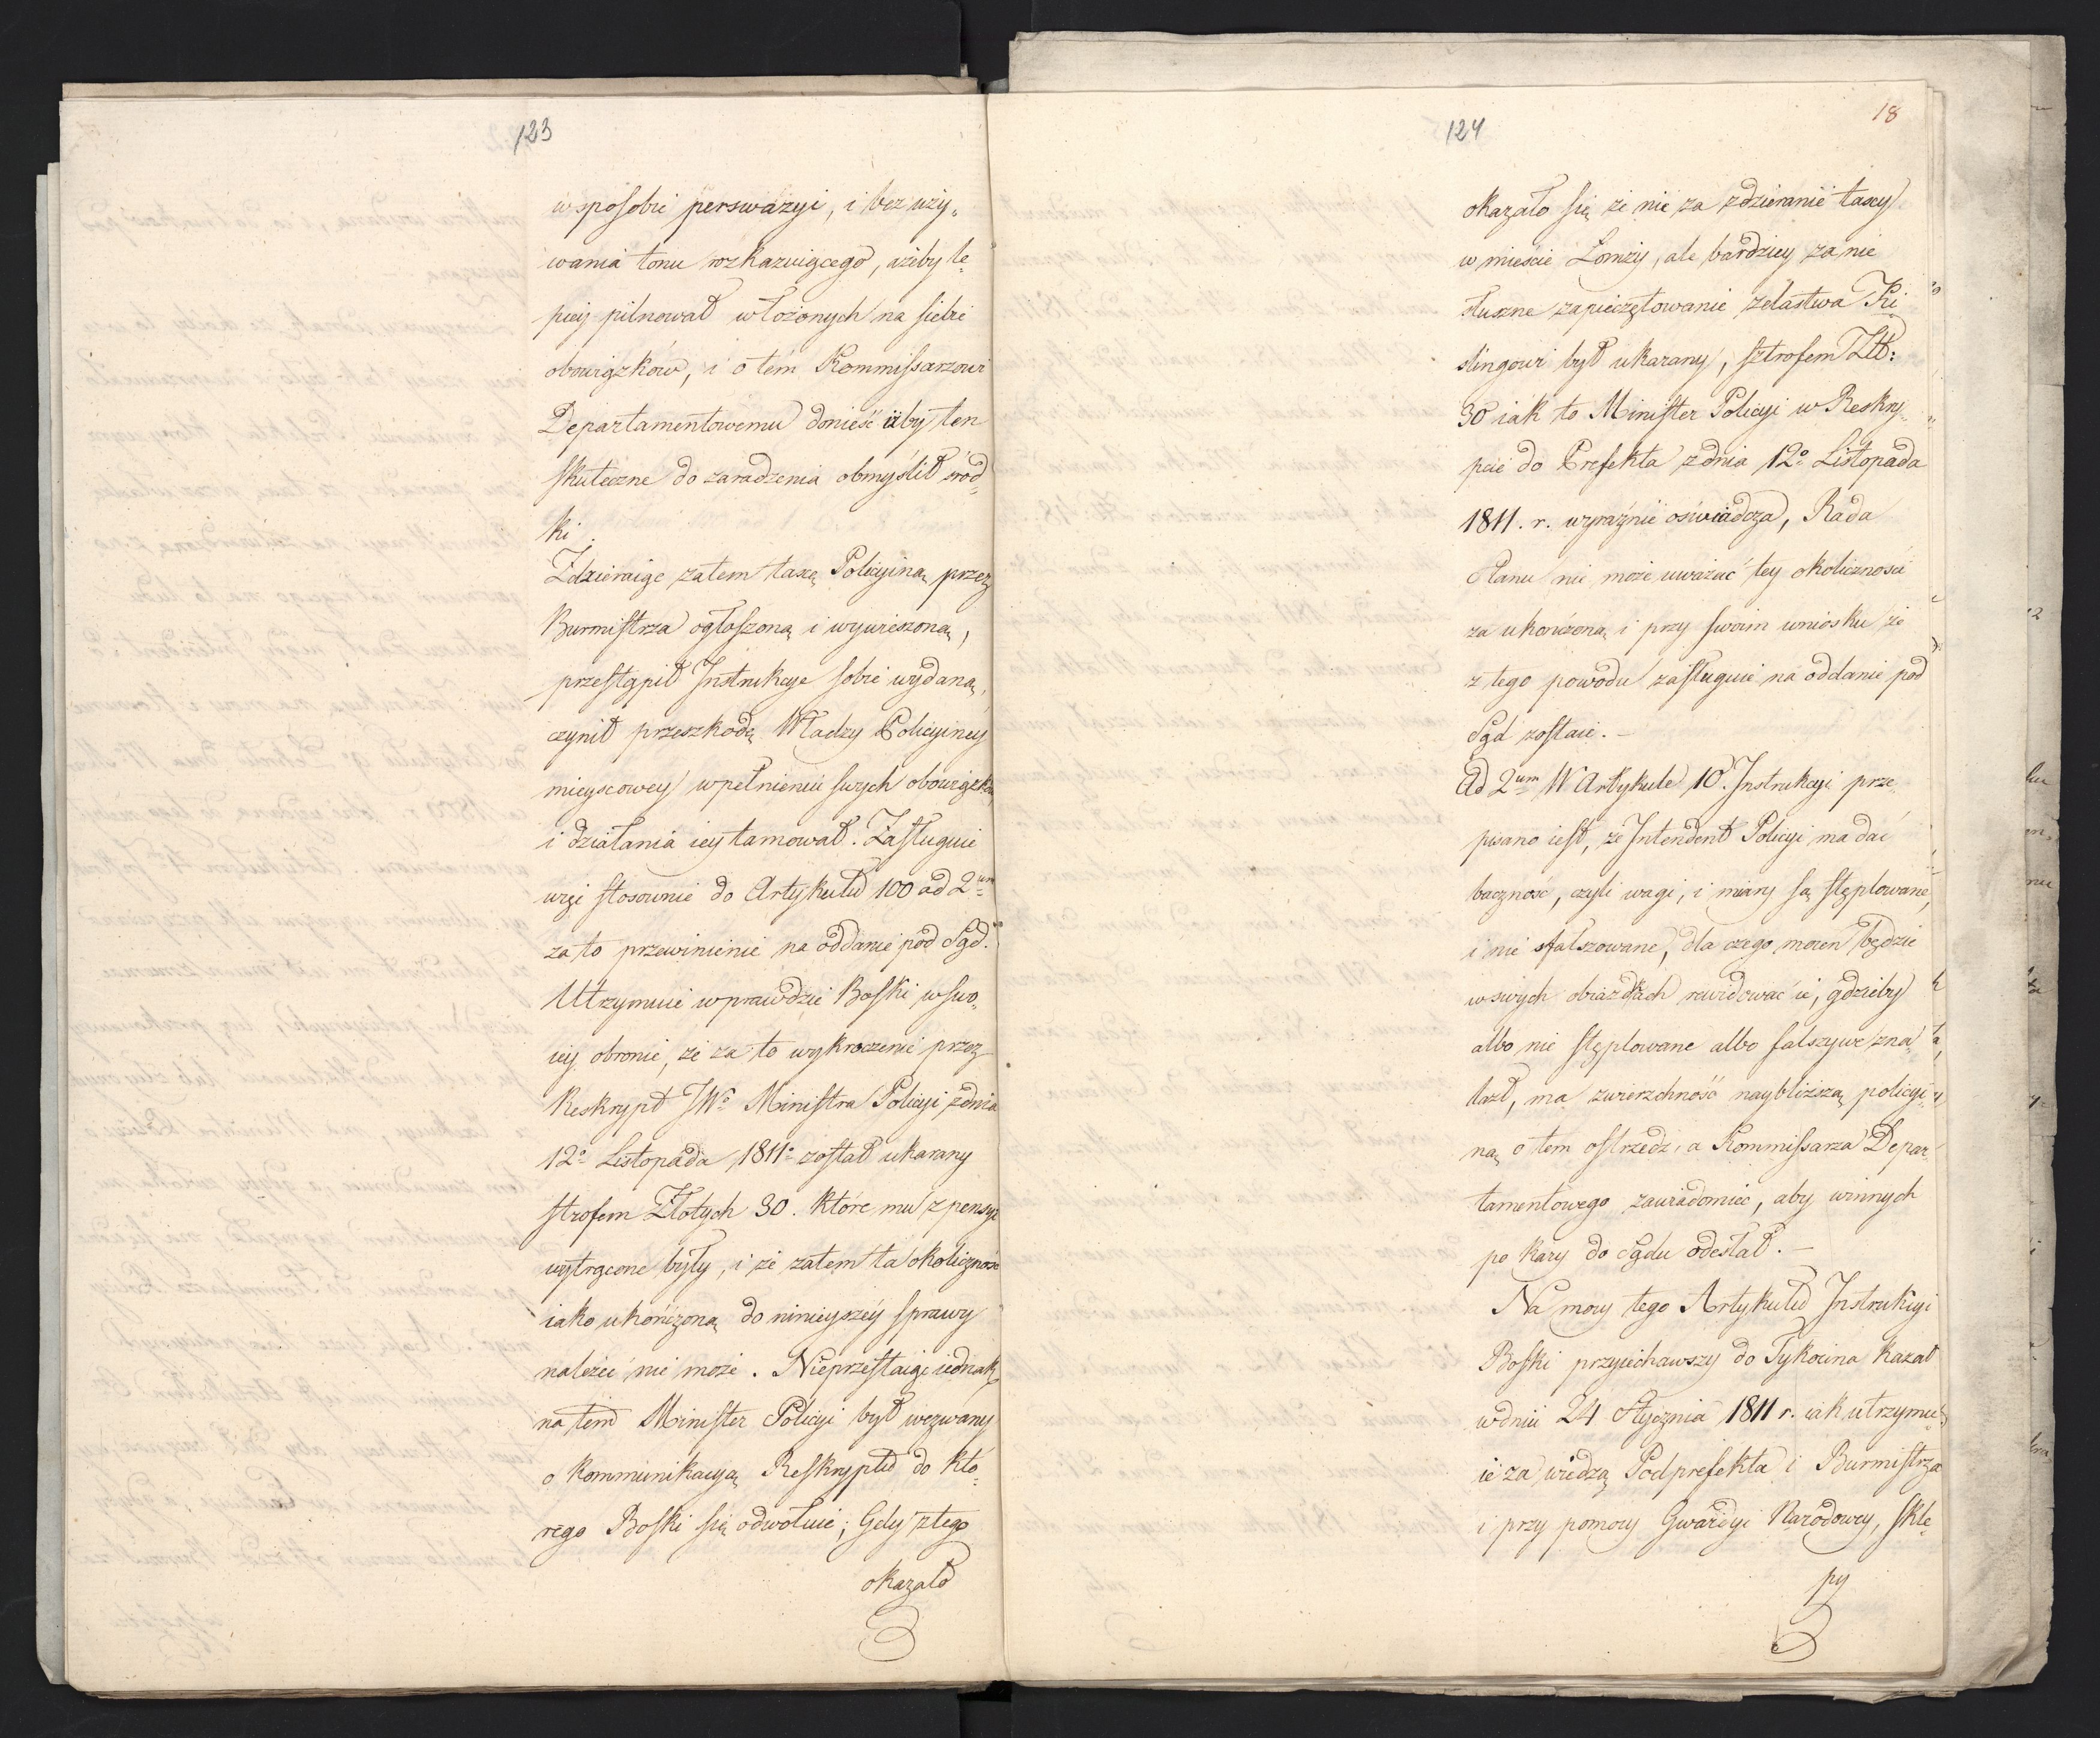 123
w sposobie perswazyi, i bez uży„
wania tonu rozkazuiącego, ażeby le„
piey pilnował włożonych na siebie
obowiązków, i o tém Kommissarzowi
Departamentowemu donieść aby ten
skuteczne do zaradzenia obmyślił środ„
ki.
Zdzieraiąc zatem taxę Policyiną przez
Burmistrza ogłoszoną i wywieszoną,
przestąpił Instrukcye sobie wydaną,
czynił przeszkodę Władzy Policyiney
mieyscowey w pełnieniu swych obowiązków
i działania iey tamował. Zasługuie
więc stosownie do Artykułu 100 ad 2um
za to przewinienie na oddanie pod Sąd.
Utrzymuie wprawdzie Boski w swo„
iey obronie, że za to wykroczenie przez
Reskrypt JWo Ministra Policyi z dnia
12o Listopada 1811o został ukarany
strofem Złotych 30. które mu z pensyi
wytrącone były, i że zatem ta okoliczność
iako ukończoną do ninieyszéy sprawy
należeć nie może. Nieprzestaiąc iednak
na tem Minister Policyi był wezwany
o kommunikacyą Reskryptu do któ„
rego Boski się odwołuie; Gdy z tego
okazało
124
18
okazało się że nie za zdzieranie taxcy
w mieście Łomży, ale bardziey za nie
słuszne zapieczętowanie żelastwa Ki„
slingowi był ukarany, sztrofem Złł:
30 iak to Minister Policyi w Reskry„
pcie do Prefekta z dnia 12o Listopada
1811. r. wyraźnie oświadcza, Rada
Stanu nie może uważać tey okoliczności
za ukończoną i przy swoim wniosku że
z tego powodu zasługuie na oddanie pod
Sąd zostaie. –
Ad 2um W Artykule 10. Instrukcyi prze„
pisano iest, że Intendent Policyi ma dać
baczność, czyli wagi, i miary są stęplowane,
i nie sfalszowane, dla czego mocen będzie
w swych obiazdkach rewidować ie, gdzieby
albo nie stęplowane albo falszywe zna„
lazł, ma zwierzchność naybliższą policyi„
ną o tem ostrzedz, a Kommissarza Depar„
tamentowego zawiadomić, aby winnych
po kary do Sądu odesłał. –
Na mocy tego Artykułu Instrukcyi
Boski przyiechawszy do Tykocina kazał
w dniu 24 Stycznia 1811 r. iak utrzymu„
ie za wiedzą Podprefekta i Burmistrza
i przy pomocy Gwardyi Narodowey, skle„
py